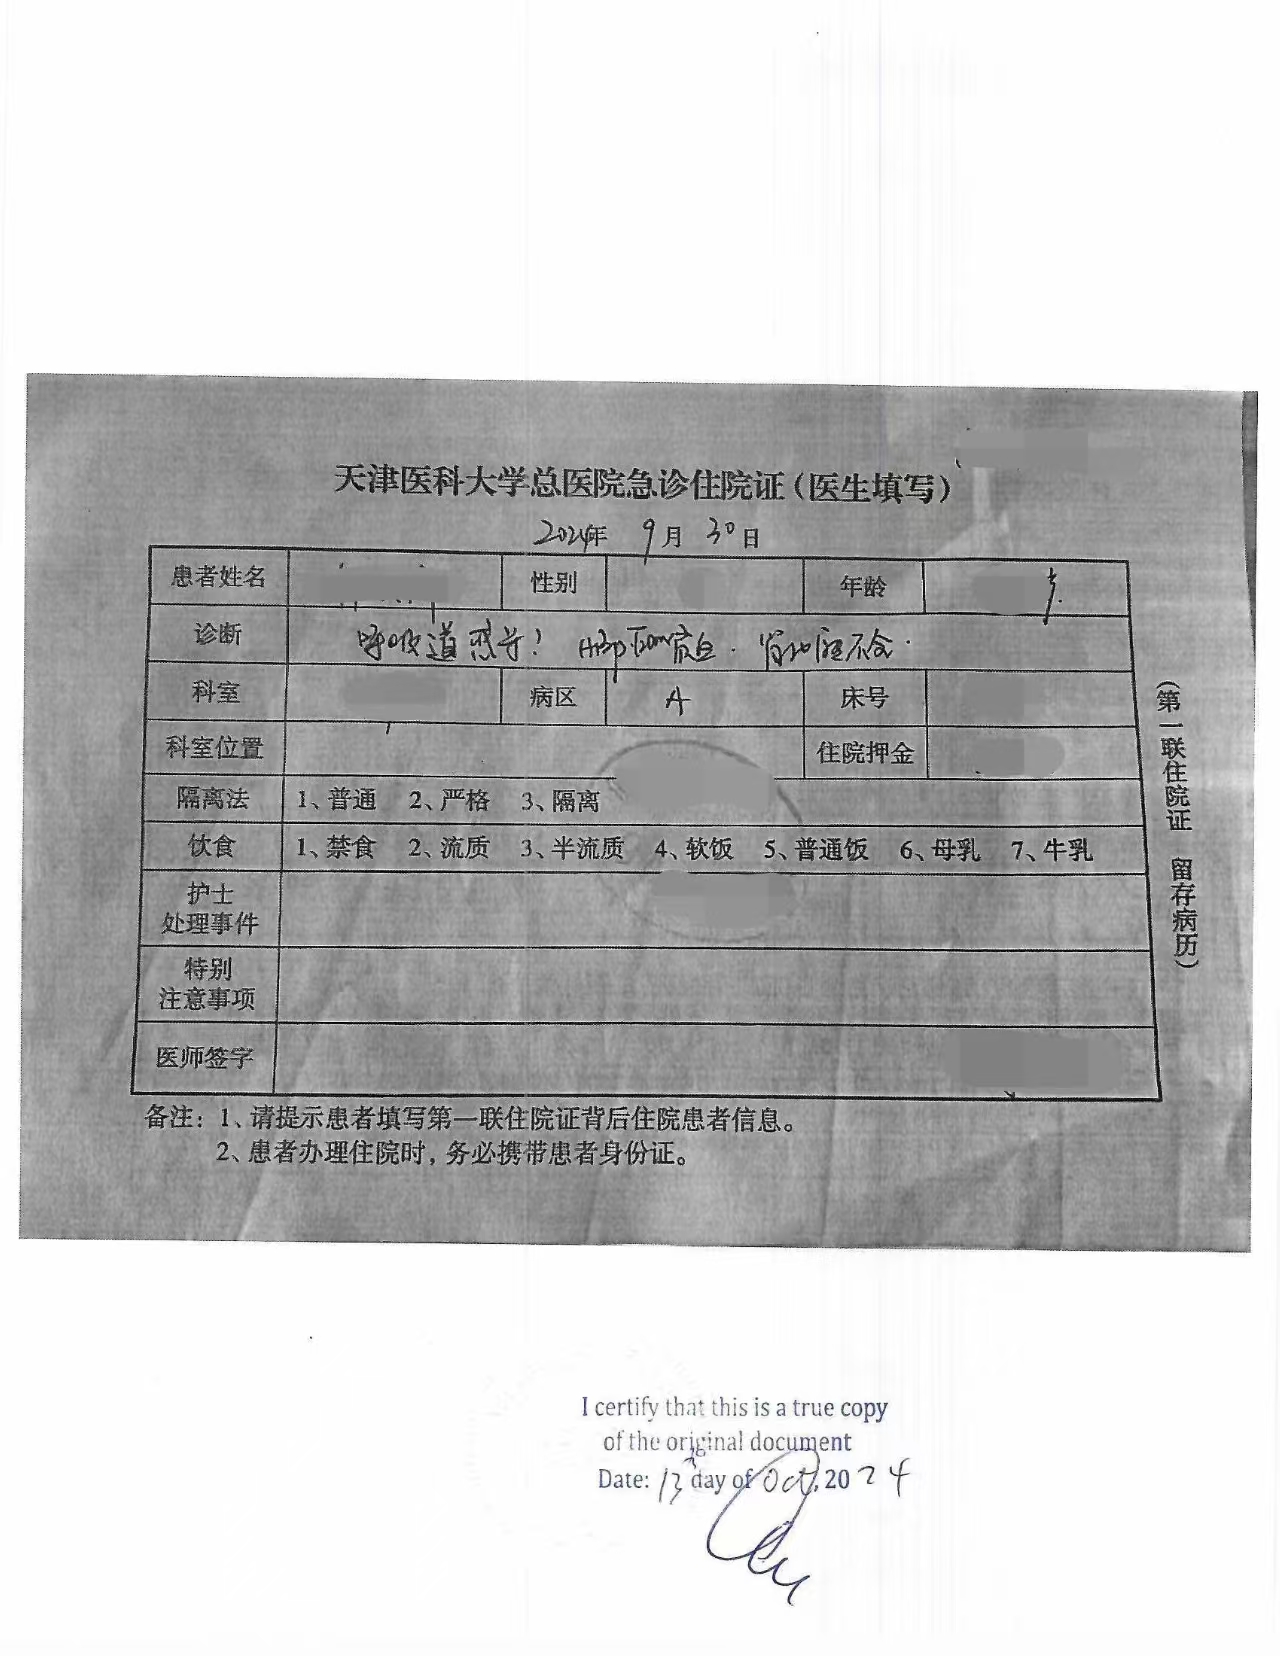 天津医科大学总医院急诊住院证（医生填写）
2024年 9月 30日
患者姓名 性别 年龄 岁
诊断 呼吸道感染！
科室 病区 A 床号
科室位置 住院押金
隔离法 1、普通 2、严格 3、隔离
饮食 1、禁食 2、流质 3、半流质 4、软饭 5、普通饭 6、母乳 7、牛乳
护士
处理事件
特别
注意事项
医师签字
（第一联住院证 留存病历）
备注：1、请提示患者填写第一联住院证背后住院患者信息。
2、患者办理住院时，务必携带患者身份证。
I certify that this is a true copy
of the original document
Date: 13 day of Oct, 2024